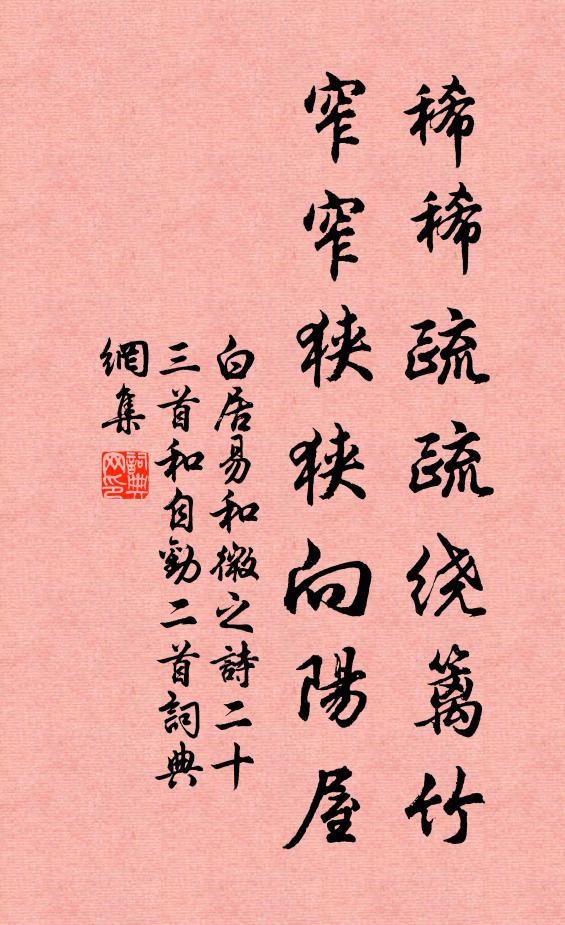 稀稀疏疏绕籬竹
窄窄狹狹向陽屋
白居易和微之詩二十
三首和自勸二首詞典
網集
詞典
网印